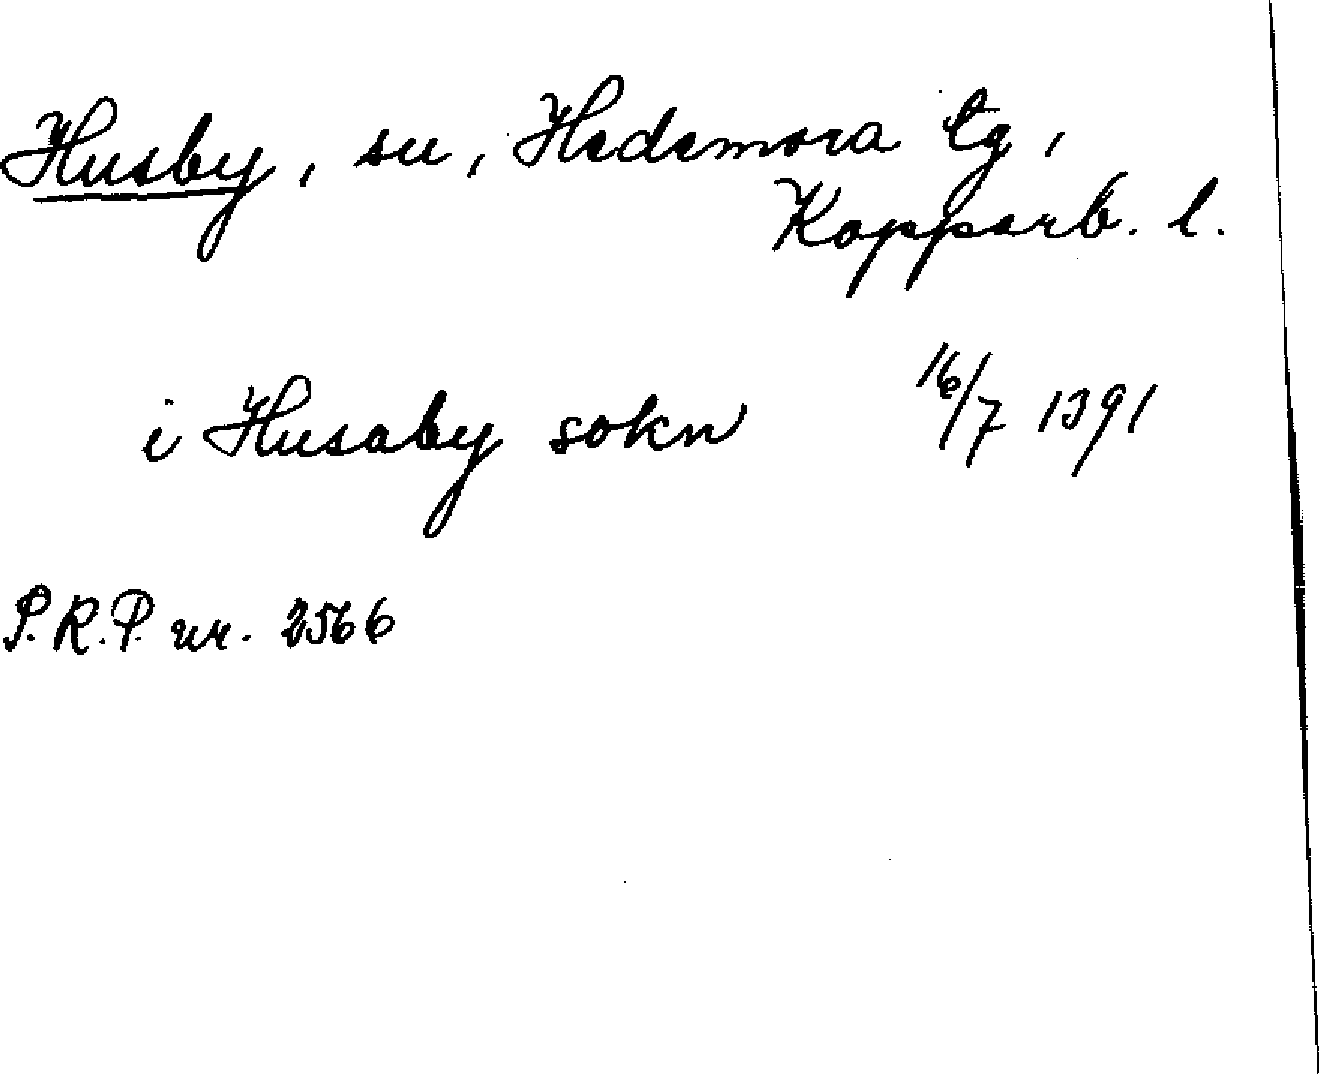 Husby, sn, Hedemora tg,
Kopparb. l.
i Husaby sokn 16/7 1391
P.R.P. nr. 2566